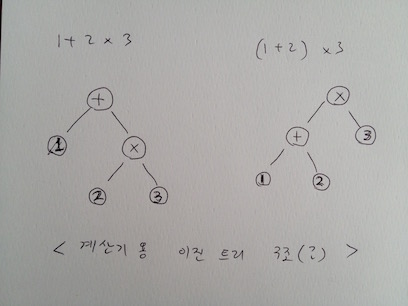 1 + 2 × 3
(1 + 2) × 3
+
1
×
2
3
×
+
3
1
2
< 계산기 용 이진 트리 구조(?) >